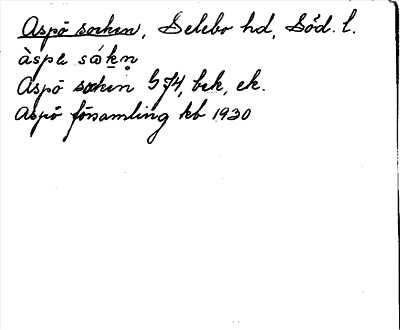 Aspö socken, Selebo hd, Söd. l.
àspe såk̲n̥
Aspö socken G 74, bek, ek.
Aspö församling kb 1930